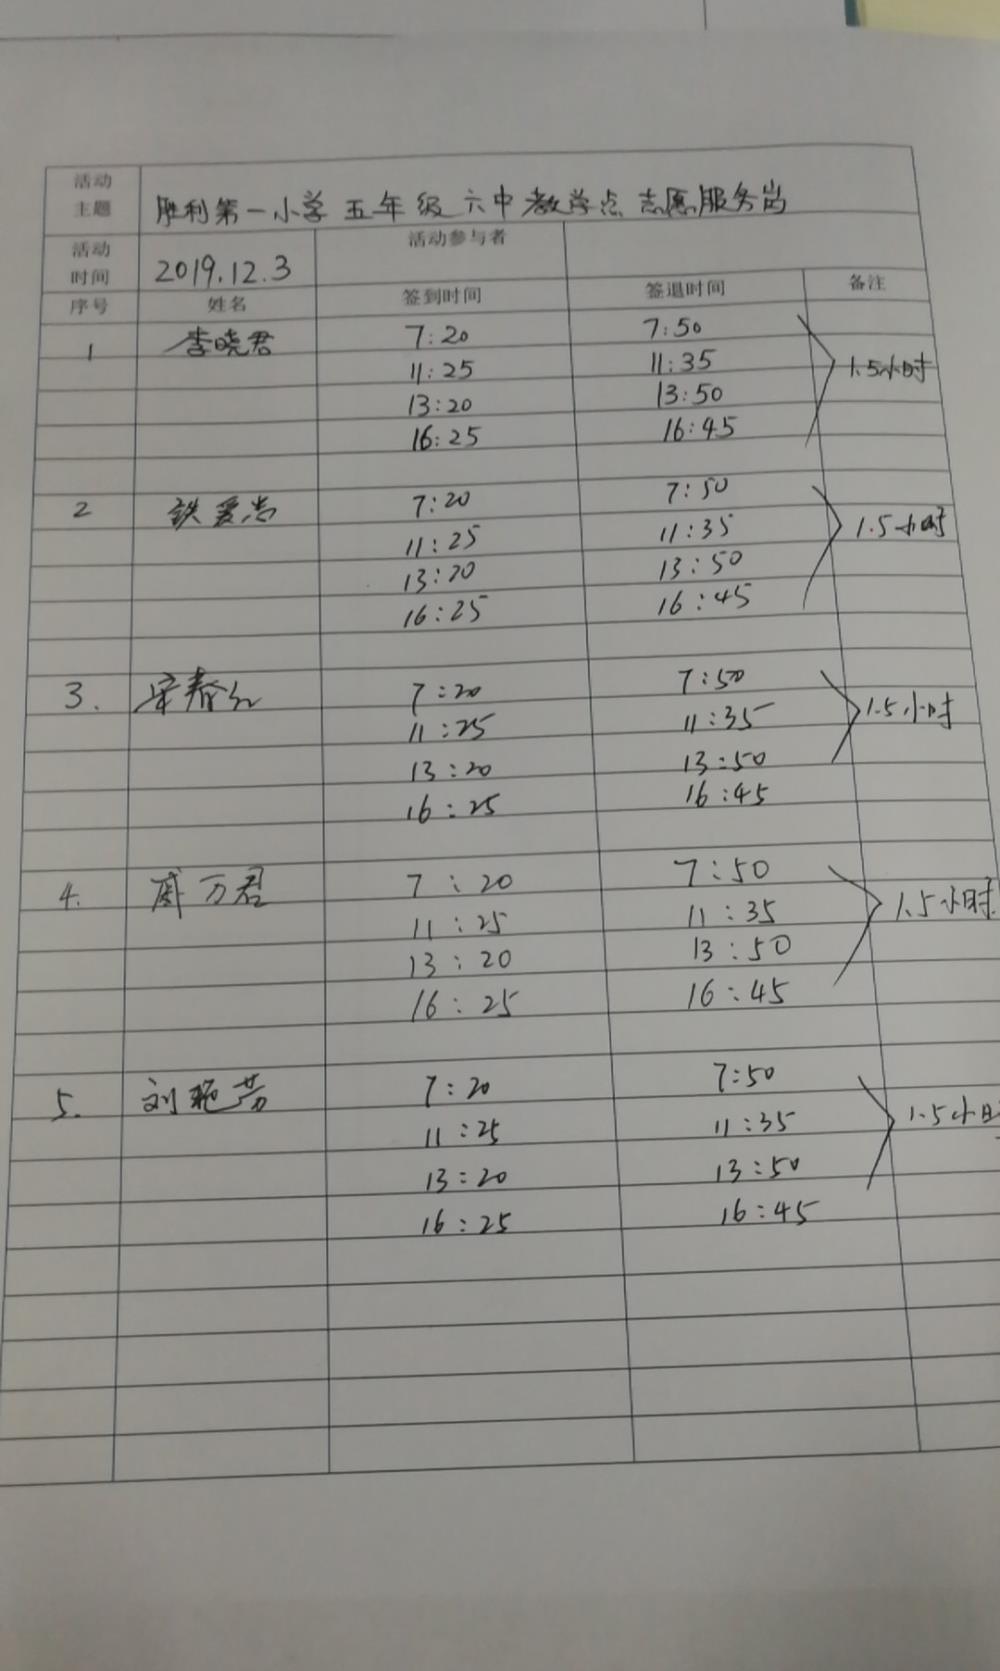 活动主题 胜利第一小学五年级六中教学点志愿服务岗
活动时间 2019.12.3 活动参与者
序号 姓名 签到时间 签退时间 备注
1 李晓君 7:20 7:50 1.5小时
11:25 11:35
13:20 13:50
16:25 16:45
2 铁爱岩 7:20 7:50 1.5小时
11:25 11:35
13:20 13:50
16:25 16:45
3. 宋春红 7:20 7:50 1.5小时
11:25 11:35
13:20 13:50
16:25 16:45
4. 万君 7:20 7:50 1.5小时
11:25 11:35
13:20 13:50
16:25 16:45
5. 刘艳芳 7:20 7:50 1.5小时
11:25 11:35
13:20 13:50
16:25 16:45